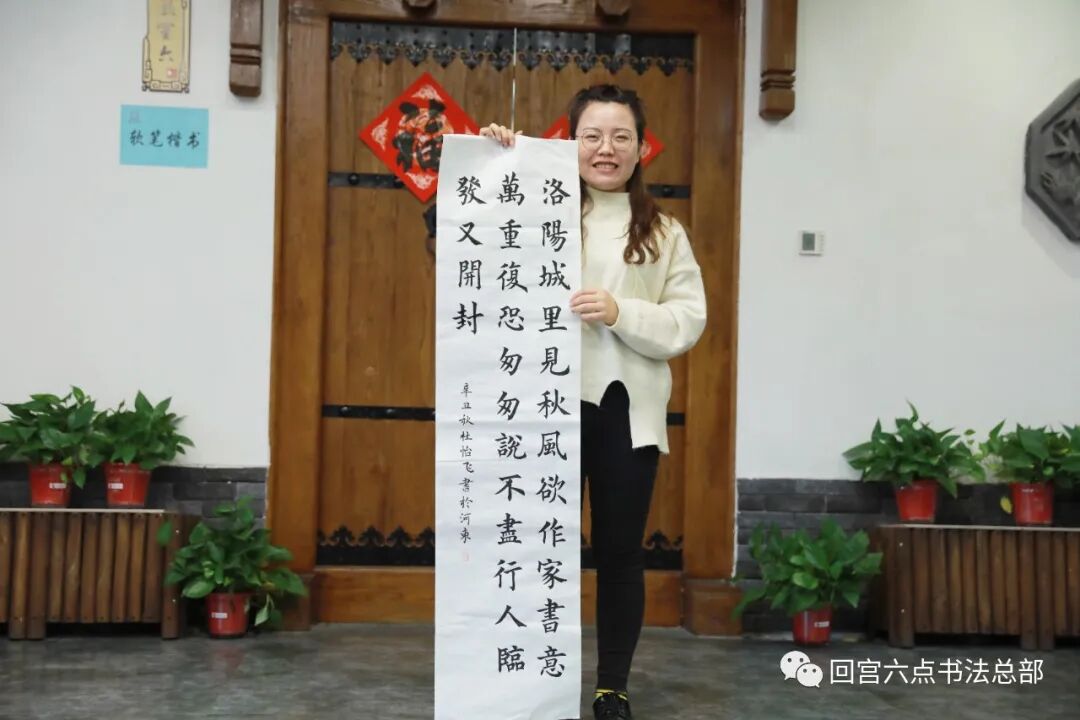 洛陽城里見秋風欲作家書意
萬重復恐匆匆說不盡行人臨
發又開封
辛丑秋杜怡飞書於河東
软笔楷书
福
回宫六点书法总部